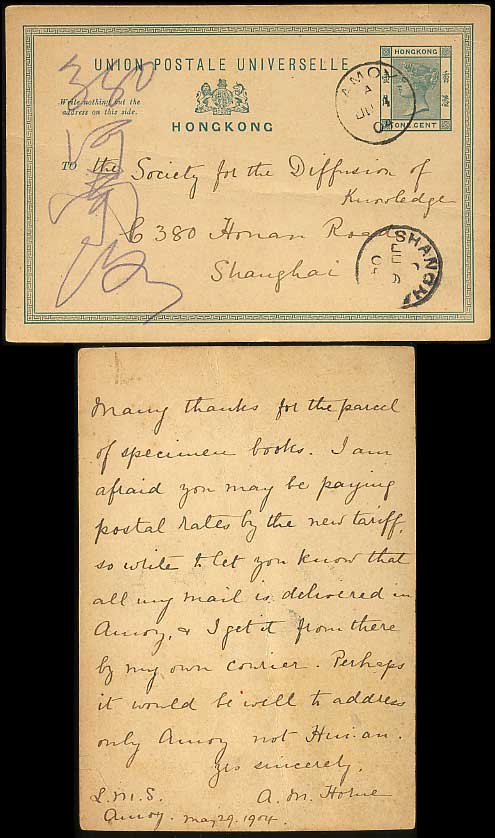 HONGKONG
UNION POSTALE UNIVERSELLE
AMOY
A
JU 4
04
香港
ONE CENT
380
Write nothing but the
address on this side.
HONGKONG
河南路
TO the Society for the Diffusion of
Knowledge
C 380 Honan Road
Shanghai
SHANGH
Many thanks for the parcel
of specimen books. I am
afraid you may be paying
postal rates by the new tariff,
so write to let you know that
all my mail is delivered in
Amoy, & I get it from there
by my own courier. Perhaps
it would be well to address
only Amoy not Hui-an.
Yrs sincerely,
L.M.S. A. M. Horne
Amoy. May 29. 1904.